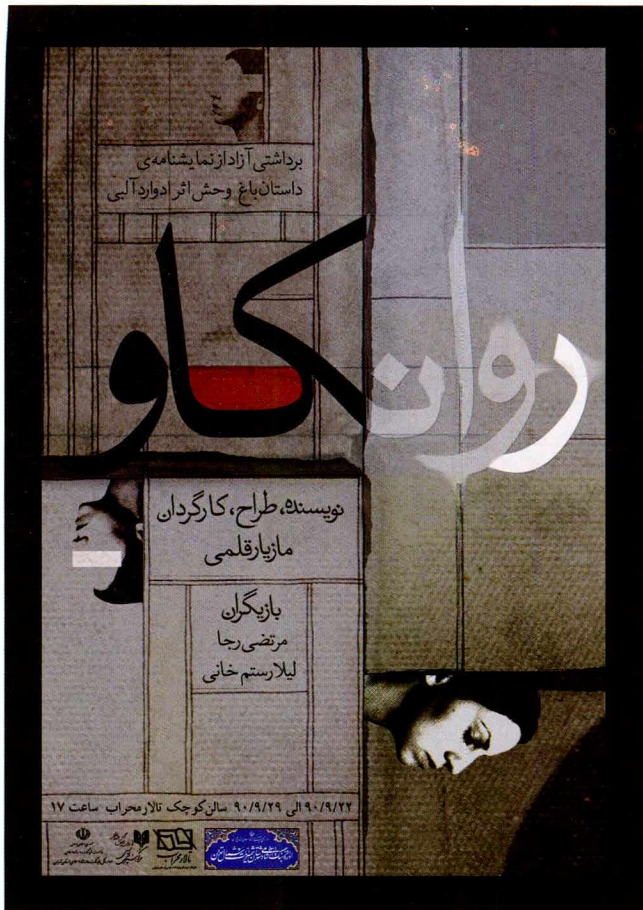 برداشتی آزاد از نمایشنامه‌ی
داستان باغ وحش اثر ادوارد آلبی
روانکاو
نویسنده، طراح، کارگردان
مازیار قلمی
بازیگران
مرتضی رجا
لیلا رستم خانی
۹۰/۹/۲۲ الی ۹۰/۹/۲۹ سالن کوچک تالار محراب ساعت ۱۷
تالار محراب